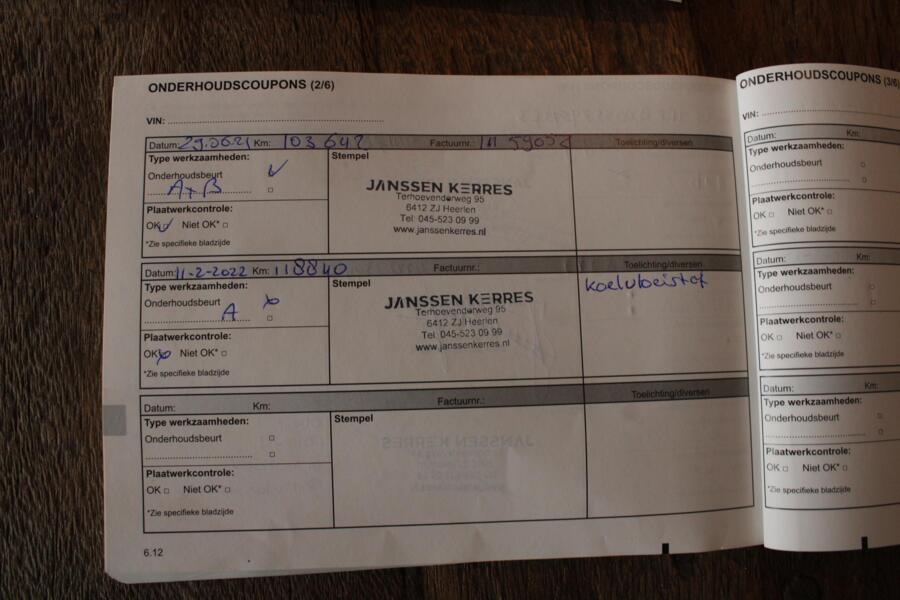 ONDERHOUDSCOUPONS (2/6)
VIN:
Datum: 29.06.21 Km: 103 642 Factuurnr.: Toelichting/diversen
Type werkzaamheden: Stempel
Onderhoudsbeurt
A + B
Plaatwerkcontrole:
OK Niet OK*
*Zie specifieke bladzijde
JANSSEN KERRES
Terhoevenderweg 95
6412 ZJ Heerlen
Tel: 045-523 09 99
www.janssenkerres.nl
Datum: 11-2-2022 Km: 118840 Factuurnr.: Toelichting/diversen
Type werkzaamheden: Stempel
Onderhoudsbeurt
A
Plaatwerkcontrole:
OK Niet OK*
*Zie specifieke bladzijde
JANSSEN KERRES
Terhoevenderweg 95
6412 ZJ Heerlen
Tel: 045-523 09 99
www.janssenkerres.nl
koelvloeistof
Datum: Km: Factuurnr.: Toelichting/diversen
Type werkzaamheden: Stempel
Onderhoudsbeurt
Plaatwerkcontrole:
OK Niet OK*
*Zie specifieke bladzijde
6.12
ONDERHOUDSCOUPONS (3/6)
VIN:
Datum: Km:
Type werkzaamheden:
Onderhoudsbeurt
Plaatwerkcontrole:
OK Niet OK*
*Zie specifieke bladzijde
Datum: Km:
Type werkzaamheden:
Onderhoudsbeurt
Plaatwerkcontrole:
OK Niet OK*
*Zie specifieke bladzijde
Datum: Km:
Type werkzaamheden:
Onderhoudsbeurt
Plaatwerkcontrole:
OK Niet OK*
*Zie specifieke bladzijde